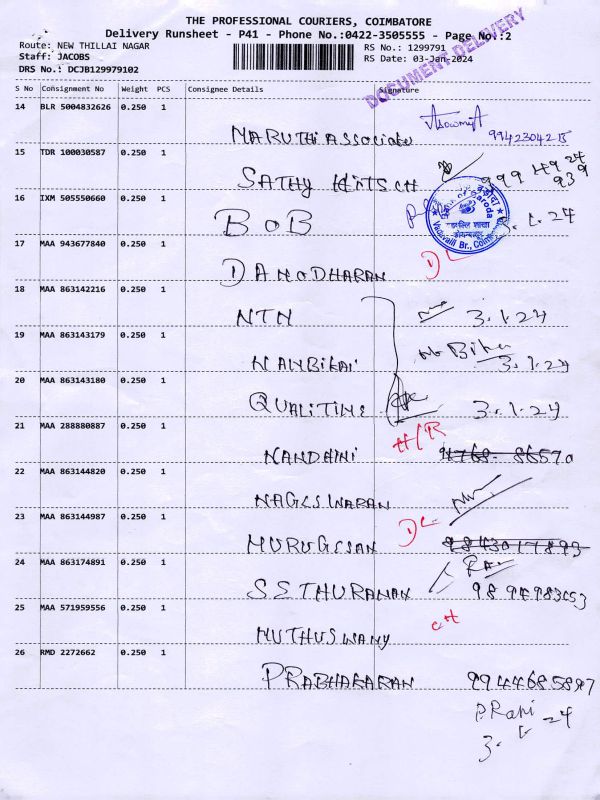 THE PROFESSIONAL COURIERS, COIMBATORE
Delivery Runsheet - P41 - Phone No.:0422-3505555 - Page No.:2
Route: NEW THILLAI NAGAR
Staff: JACOBS
DRS No.: DCJB129979102
RS No.: 1299791
RS Date: 03-Jan-2024
DOCUMENT DELIVERY
S No Consignment No Weight PCS Consignee Details Signature
14 BLR 5004832626 0.250 1
MARUTHi Associate 9942304215
15 TDR 100030587 0.250 1
SATHY
16 IXM 505550660 0.250 1
BOB
Vadavalli Br., Coim
17 MAA 943677840 0.250 1
DAMODHARAN DL
18 MAA 863142216 0.250 1
NTN 3.1.24
19 MAA 863143179 0.250 1
NAMBiKAi 3.1.24
20 MAA 863143180 0.250 1
QUALITIME 3.1.24
21 MAA 288880887 0.250 1
NANDHINI H/R
22 MAA 863144820 0.250 1
NAGESWARAN
23 MAA 863144987 0.250 1
MURUGESAN DL
24 MAA 863174891 0.250 1
SETHURAMAN
25 MAA 571959556 0.250 1
MUTHUSWAMY
26 RMD 2272662 0.250 1
PRABHAKARAN 9944685897